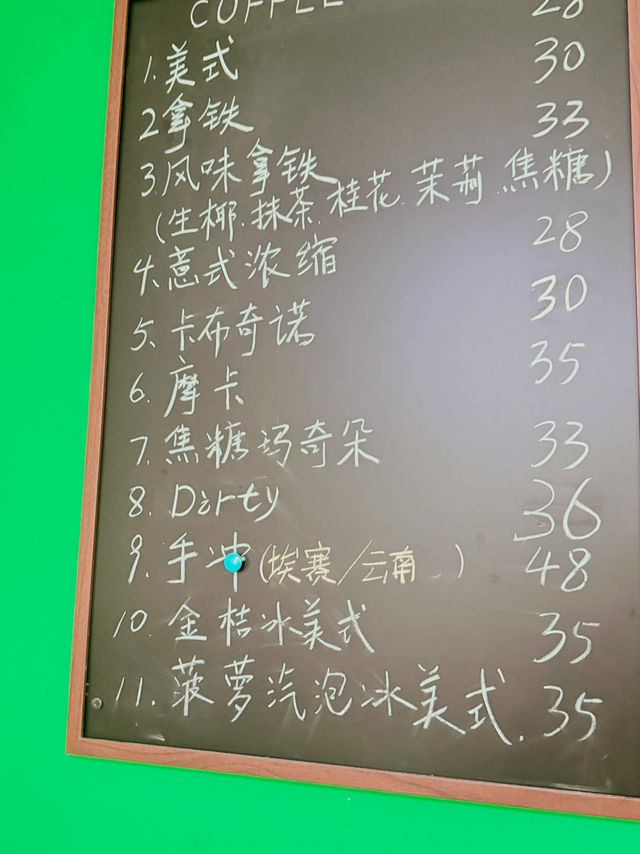 COFFEE
1.美式 28
2拿铁 30
3.风味拿铁 33
(生椰.抹茶.桂花.茉莉.焦糖)
4.意式浓缩 28
5.卡布奇诺 30
6.摩卡 35
7.焦糖玛奇朵 33
8.Dirty 36
9.手冲(埃塞/云南 ) 48
10.金桔冰美式 35
11.菠萝汽泡冰美式. 35